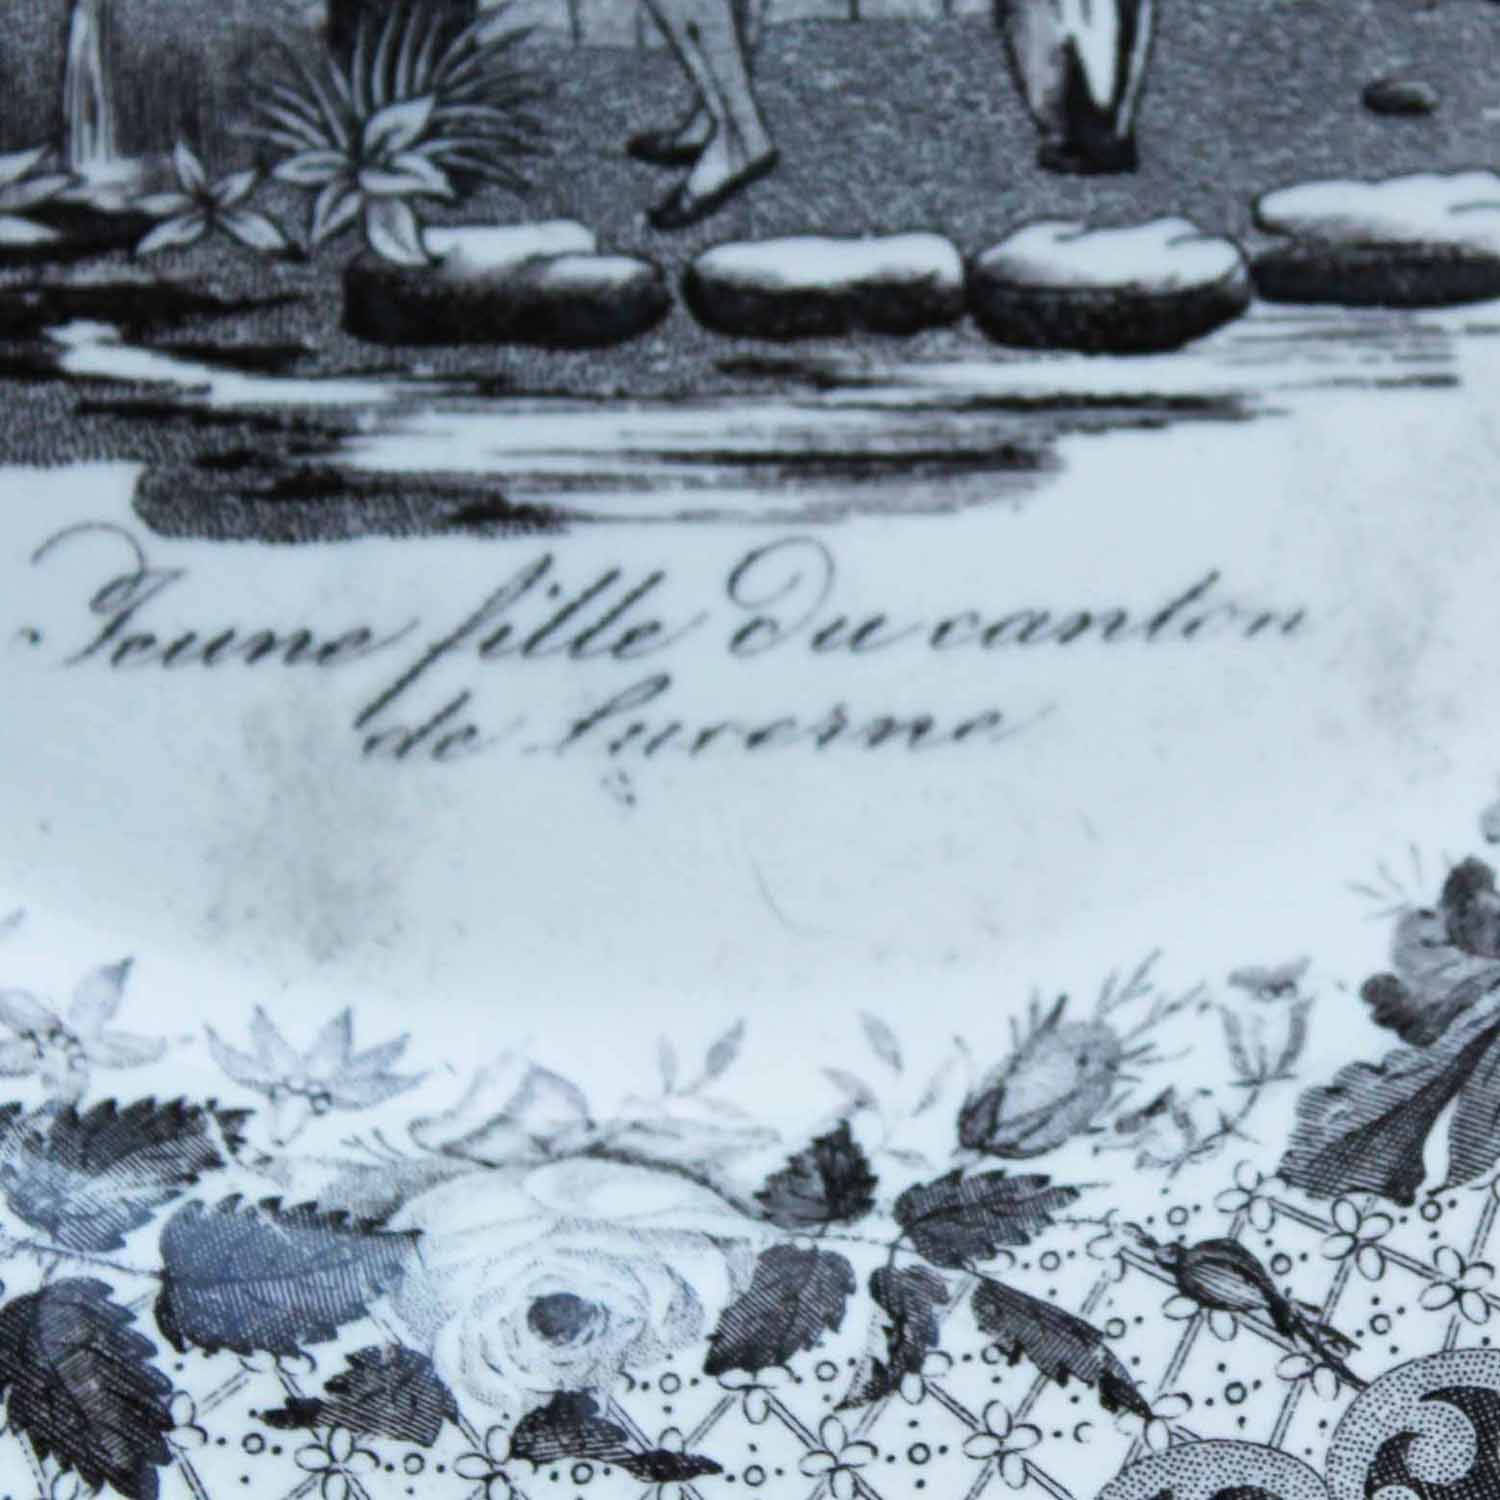 Jeune fille Du canton
de lucerne